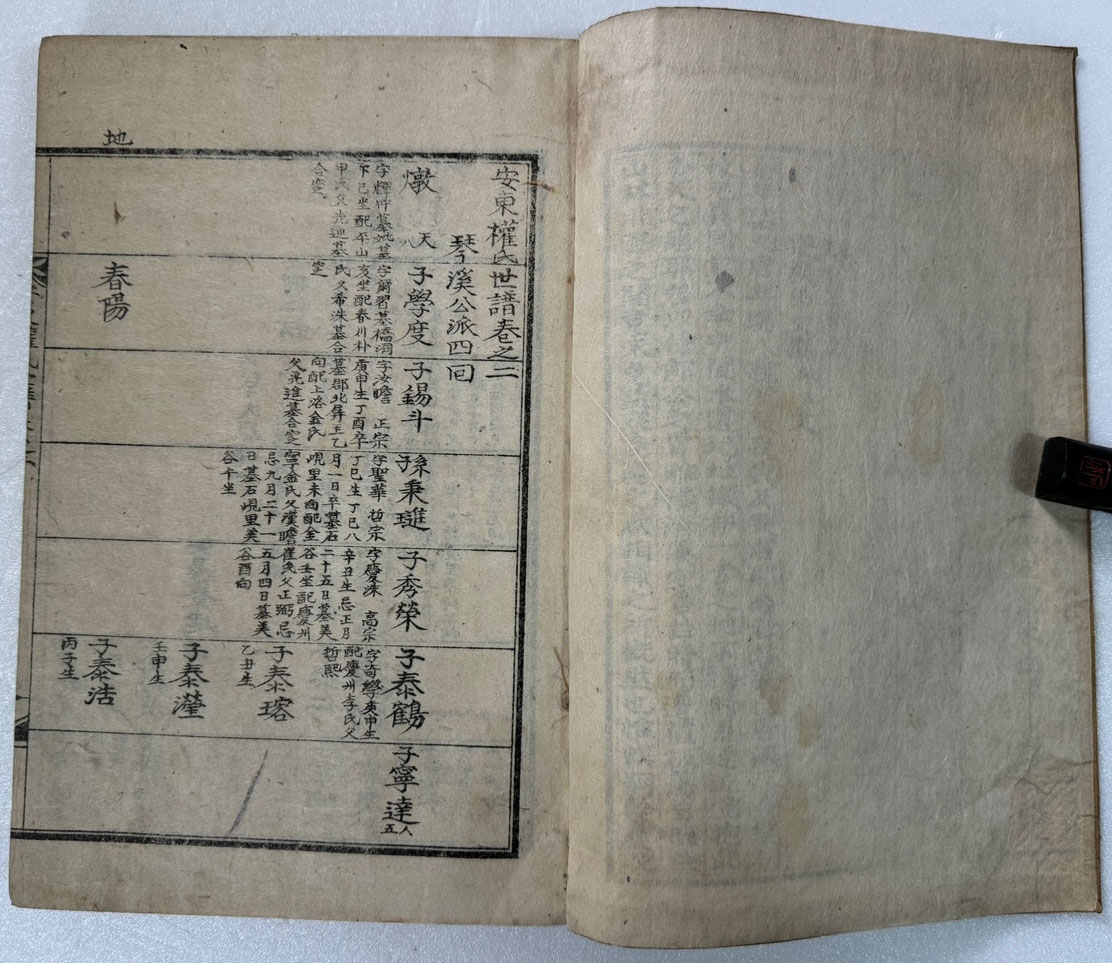 地
安東權氏世譜卷之二
琴溪公派四回
燉
天
八
字輝仲墓妣墓
下巳坐配平山
申氏父光迪墓
合窆
子學度
字爾習墓橋洞
亥坐配春川朴
氏父希洙墓合
窆
春陽
子錫斗
字汝瞻 正宗
庚申生丁酉卒
墓郡北屛王乙
向配上洛金氏
父光進墓合窆
孫秉璡
字聖華 哲宗
丁巳生丁巳八
月一日卒墓石
峴里未向配金
寧金氏父漢瞻
忌九月二十一
日墓石峴里美
谷午坐
子秀榮
字慶洙 高宗
辛丑生忌正月
二十五日墓美
谷壬坐配慶州
崔氏父正弼忌
五月四日墓美
谷酉向
子泰鶴
字奇學庚申生
配慶州李氏父
哲熙
子泰瑢
乙丑生
子泰瀅
壬申生
子泰浩
丙子生
子寧達
五人